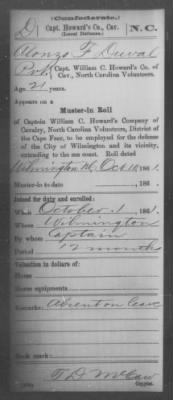 (Confederate.)
D Capt. Howard's Co., Cav. N.C.
(Local Defense.)
Alonzo F Duval
Pvt, Capt. William C. Howard's Co. of
Cav., North Carolina Volunteers.
Age 21 years.
Appears on a
Muster-in Roll
of Captain William C. Howard's Company of
Cavalry, North Carolina Volunteers, District of
the Cape Fear, to be employed for the defense
of the City of Wilmington and its vicinity,
extending to the sea coast. Roll dated
Wilmington N.C., Oct 18, 1861.
Muster-in to date , 186 .
Joined for duty and enrolled:
When October 1, 1861.
Where Wilmington
By whom Captain
Period 12 months
Valuation in dollars of:
Horse
Horse equipments
Remarks: Absent on leave
Book mark:
Copyist.